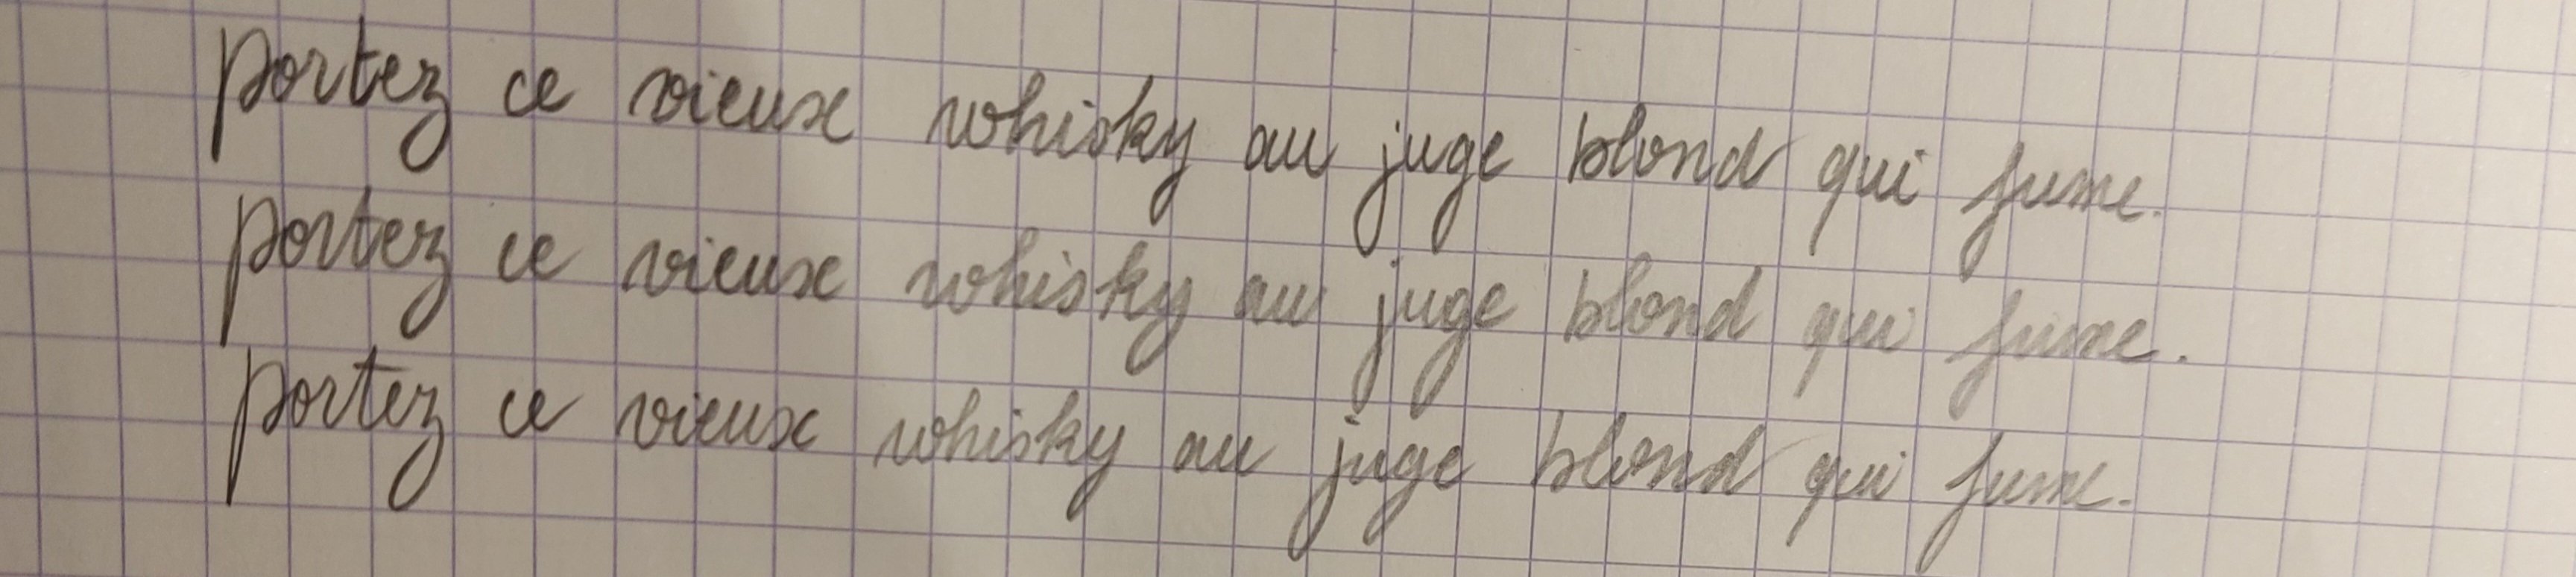 portez ce vieux whisky au juge blond qui fume.
portez ce vieux whisky au juge blond qui fume.
portez ce vieux whisky au juge blond qui fume.